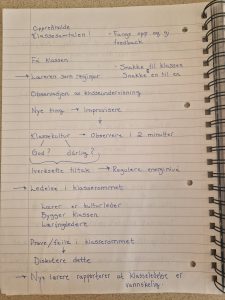 Opprettholde
klassesamtalen!
- Fange opp og gi
feedback
Få klassen
→ Læreren som regissør
- Snakke til klassen
Snakke en til en
Observasjon av klasseundervisning
Nye ting → Improvisere
Klassekultur → Observere i 2 minutter
God? dårlig?
Iverksette tiltak → Regulere energinivå
→ Ledelse i klasserommet
Lærer er kulturleder
Bygger klassen
Læringsleder
Prøve/feile i klasserommet
Diskutere dette
→ Nye lærere rapporterer at klasseledelse er
vanskelig.